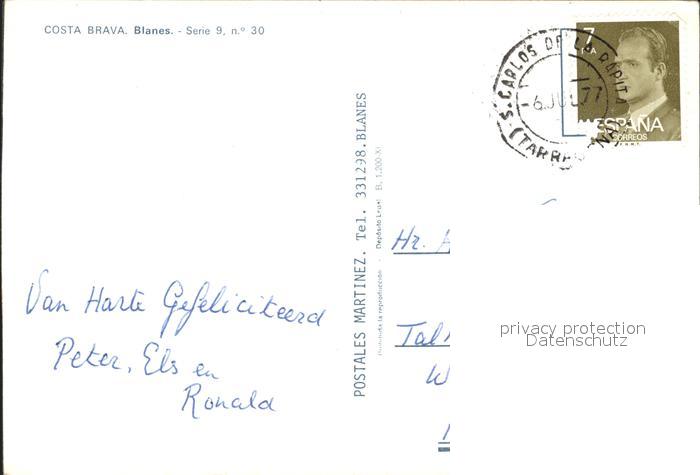 COSTA BRAVA. Blanes. - Serie 9, n.º 30
7
PTA
ESPAÑA
CORREOS
F.N.M.T.
S. CARLOS DE LA RAPITA
-6 JUL 77
(TARRAGONA)
POSTALES MARTINEZ. Tel. 331298. BLANES
Depósito Legal B. 1.200-XI
Prohibida la reproducción
Hr. A
Tal
W
Van Harte Gefeliciteerd
Peter, Els en
Ronald
privacy protection
Datenschutz